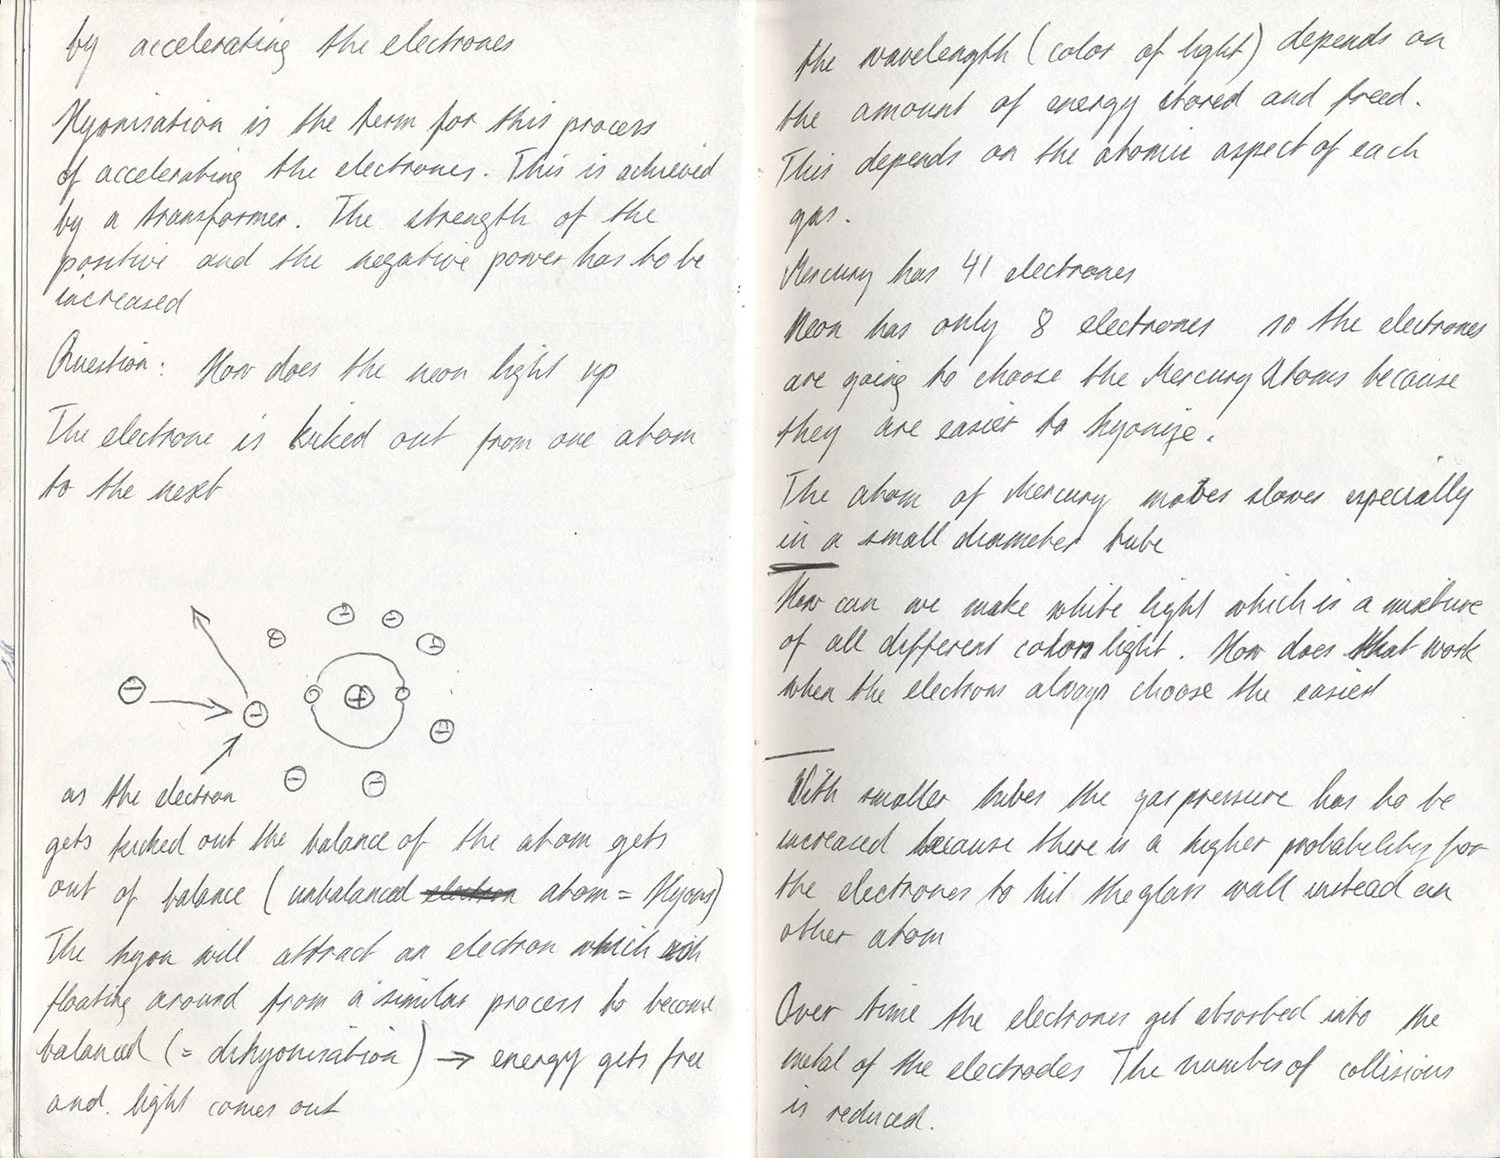 by accelerating the electrones
Hyonisation is the term for this process
of accelerating the electrones. This is achieved
by a transformer. The strength of the
positive and the negative power has to be
increased
Question: How does the neon light up
The electrone is kicked out from one atom
to the next
as the electron
gets kicked out the balance of the atom gets
out of balance (unbalanced electron atom = Hyons)
The hyon will attract an electron which
floating around from a similar process to become
balanced (= dihyonisation) → energy gets free
and. light comes out
the wavelength (color of light) depends on
the amount of energy stored and freed.
This depends on the atomic aspect of each
gas.
Mercury has 41 electrones
Neon has only 8 electrones so the electrones
are going to choose the Mercury Atoms because
they are easier to hyonize.
The atom of Mercury moves slower especially
in a small diameter tube
How can we make white light which is a mixture
of all different colors light. How does that work
when the electrons always choose the easiest
With smaller tubes the gas pressure has to be
increased because there is a higher probability for
the electrones to hit the glass wall instead an
other atom
Over time the electrones get absorbed into the
metal of the electrodes The number of collisions
is reduced.